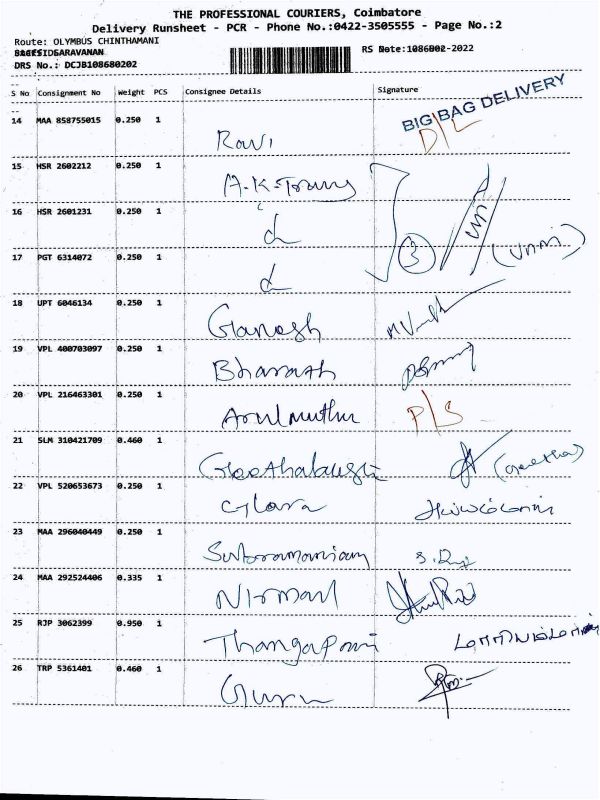 THE PROFESSIONAL COURIERS, Coimbatore
Delivery Runsheet - PCR - Phone No.:0422-3505555 - Page No.:2
Route: OLYMBUS CHINTHAMANI
RS No
DRS No.: DCJB108680202
S No Consignment No Weight PCS Consignee Details Signature
14 MAA 858755015 0.250 1 Ravi BIG BAG DELIVERY D/L
15 HSR 2602212 0.250 1 A.K-Trans
16 HSR 2601231 0.250 1
17 PGT 6314072 0.250 1 3
18 UPT 6046134 0.250 1 Ganesh
19 VPL 400703097 0.250 1 Bharath
20 VPL 216463301 0.250 1 Arulmuthu P/S
21 SLM 310421709 0.460 1 (Geetha)
22 VPL 520653673 0.250 1 Glara
23 MAA 296040449 0.250 1 Subramaniam
24 MAA 292524406 0.335 1 Nirmal
25 RJP 3062399 0.950 1 Thangapani
26 TRP 5361401 0.460 1 Guru